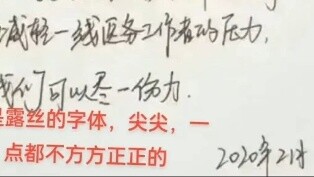 减轻一线医务工作者的压力,
我们可以尽一份力.
是露丝的字体，尖尖，一
点都不方方正正的
2020年2月